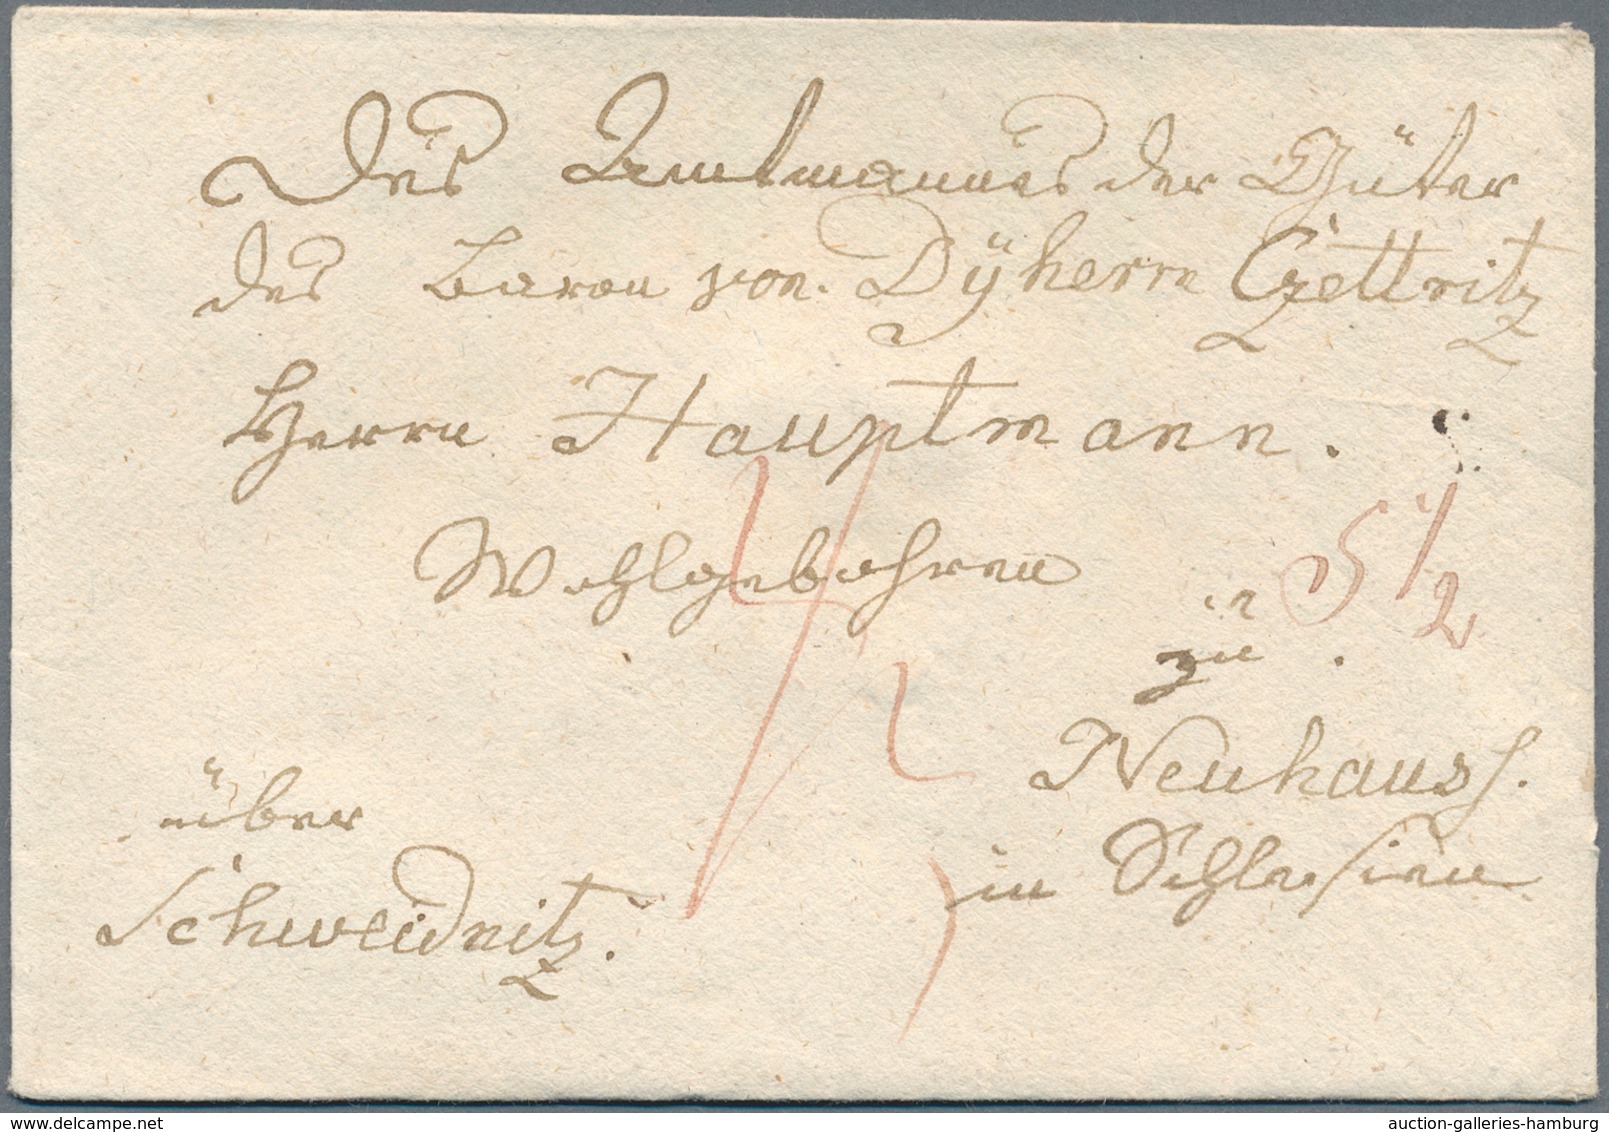 Des Amtmannes der Güter
des Baron von Dÿherrn Czettritz
Herrn Hauptmann.
Wohlgebohren
5 1/2
zu
Neuhauss.
über
in Schlesien
Schweidnitz.
delcampe.net
auction-galleries-hamburg